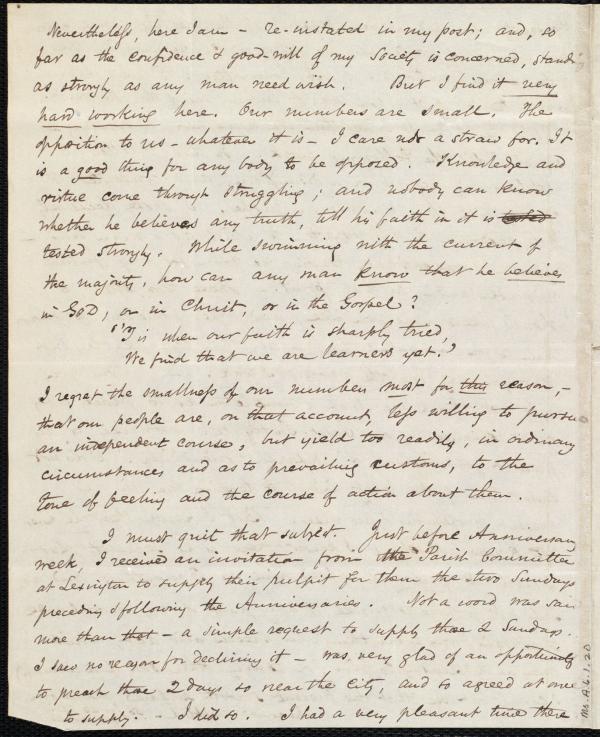 Nevertheless, here I am - re-instated in my post; and, so
far as the confidence & good-will of my Society is concerned, standing
as strongly as any man need wish. But I find it very
hard working here. Our numbers are small. The
opposition to us - whatever it is - I care not a straw for. It
is a good thing for any body to be opposed. Knowledge and
virtue come through struggling; and nobody can know
whether he believes any truth, till his faith in it is tested
tested strongly. While swimming with the current of
the majority, how can any man know that he believes
in God, or in Christ, or in the Gospel?
"'Tis when our faith is sharply tried,
We find that we are learners yet."
I regret the smallness of our numbers most for this reason, -
that our people are, on that account, less willing to pursue
an independent course, but yield too readily, in ordinary
circumstances and as to prevailing customs, to the
tone of feeling and the course of action about them.
I must quit that subject. Just before Anniversary
week, I received an invitation from the Parish Committee
at Lexington to supply their pulpit for them the two Sundays
preceding & following the Anniversaries. Not a word was said
more than that - a simple request to supply those 2 Sundays.
I saw no reason for declining it - was very glad of an opportunity
to preach those 2 days so near the City, and so agreed at once
to supply. - I did so. I had a very pleasant time there
Ms. A. 6. 1. 20